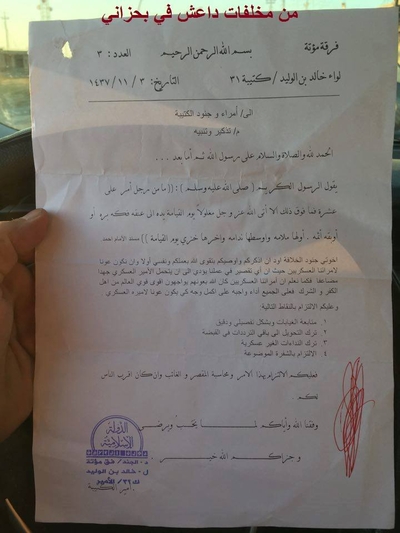 من مخلفات داعش في بحزاني
فرقة مؤتة
بسم الله الرحمن الرحيم
العدد: ٣
لواء خالد بن الوليد / كتيبة ٣١
التاريخ: ٣ / ١١ / ١٤٣٧
الى/ أمراء و جنود الكتيبة
م/ تذكير وتنبيه
الحمد لله والصلاة والسلام على رسول الله ثم أما بعد ...
يقول الرسول الكريم ( صلى الله عليه وسلم ) : (( ما من رجل أمر على
عشرة فما فوق ذلك ألا أتى الله عز وجل مغلولاً يوم القيامة يده الى عنقه فكه بره أو
أوثقه أثمه . أولها ملامه واوسطها ندامه واخرها خزي يوم القيامة )) مسند الامام احمد
اخوتي جنود الخلافة اود أن اذكركم واوصيكم بتقوى الله بعملكم ونفسي أولا وان نكون عونا
لامرائنا العسكريين حيث ان أي تقصير في عملنا يؤدي الى ان يتحمل الامير العسكري جهدا
مضاعفا. فكما نعلم ان أمرائنا العسكريين كان الله بعونهم يواجهون اقوى قوى العالم من اهل
الكفر و الشرك. فعلى الجميع اداء واجبه على اكمل وجه كي يكون عونا لاميره العسكري
وعليكم الالتزام بالنقاط التالية:
١ متابعة الغيابات وبشكل تفصيلي ودقيق
٢ ترك التحويل الى باقي الترددات في القبضة
٣ ترك النداءات الغير عسكرية
٤ الالتزام بالشفرة الموضوعة
فعليكم الالتزام بهذا الامر ومحاسبة المقصر و الغائب وان كان اقرب الناس
لكم
وفقنا الله وأياكم لما يحب ويرضى
و جزاكم الله خير
الدولة
الاسلامية
د- الجند / فق مؤتة
ل- خالد بن الوليد